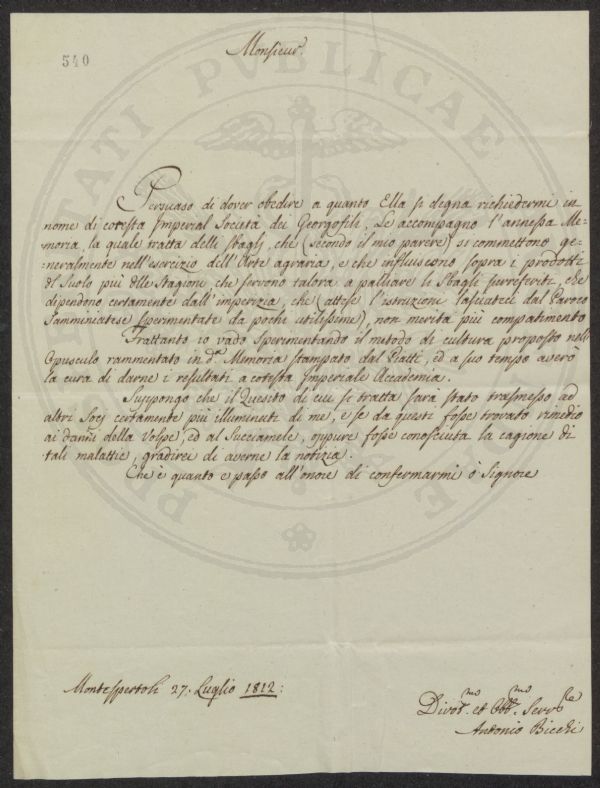 540
Monsieur.
Persuaso di dover obedire a quanto Ella si degna richiedermi in
nome di cotesta Imperial Società dei Georgofili, Le accompagno l'annessa Me-
moria, la quale tratta delli sbaglj, che (secondo il mio parere) si commettono ge-
=neralmente nell'esercizio dell'Arte agraria, e che influiscono sopra i prodotti
del Suolo più delle Stagioni, che servono talora a palliare li Sbagli surreferiti, che
dipendono certamente dall'imperizia, che (attese l'istruzioni lasciateci dal Paroco
Samminiatese sperimentate da pochi utilissime), non merita più compatimento
Frattanto io vado sperimentando il metodo di cultura proposto nell'
Opuscolo rammentato in d.a Memoria stampato dal Piatti, ed a suo tempo averò
la cura di darne i resultati a cotesta Imperiale Accademia.
Suppongo che il Quesito di cui si tratta sarà stato trasmesso ad
altri Socj certamente più illuminati di me, e se da questi fosse trovato rimedio
ai danni della Volpe, ed al Succiamele, oppure fosse conosciuta la cagione di
tali malattie, gradirei di averne la notizia.
Che è quanto e passo all'onore di confermarmi ò Signore
Montespertoli 27. Luglio 1812:
Divot.mo et Obb.mo Serv.re
Antonio Bicchi
PUBLICAE